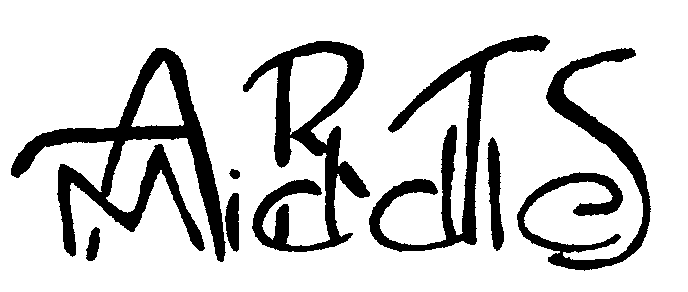 ARTS
Middle